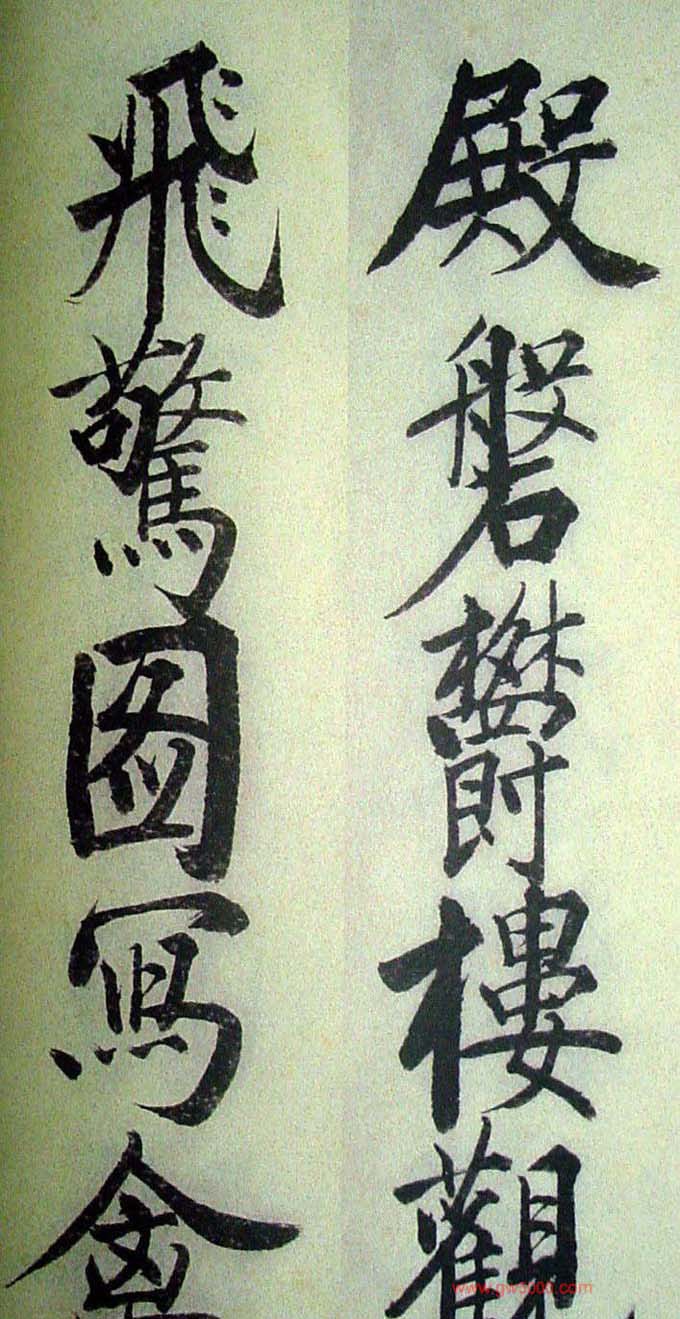 殿磐欝樓觀
飛驚圖寫禽
www.gw5000.com